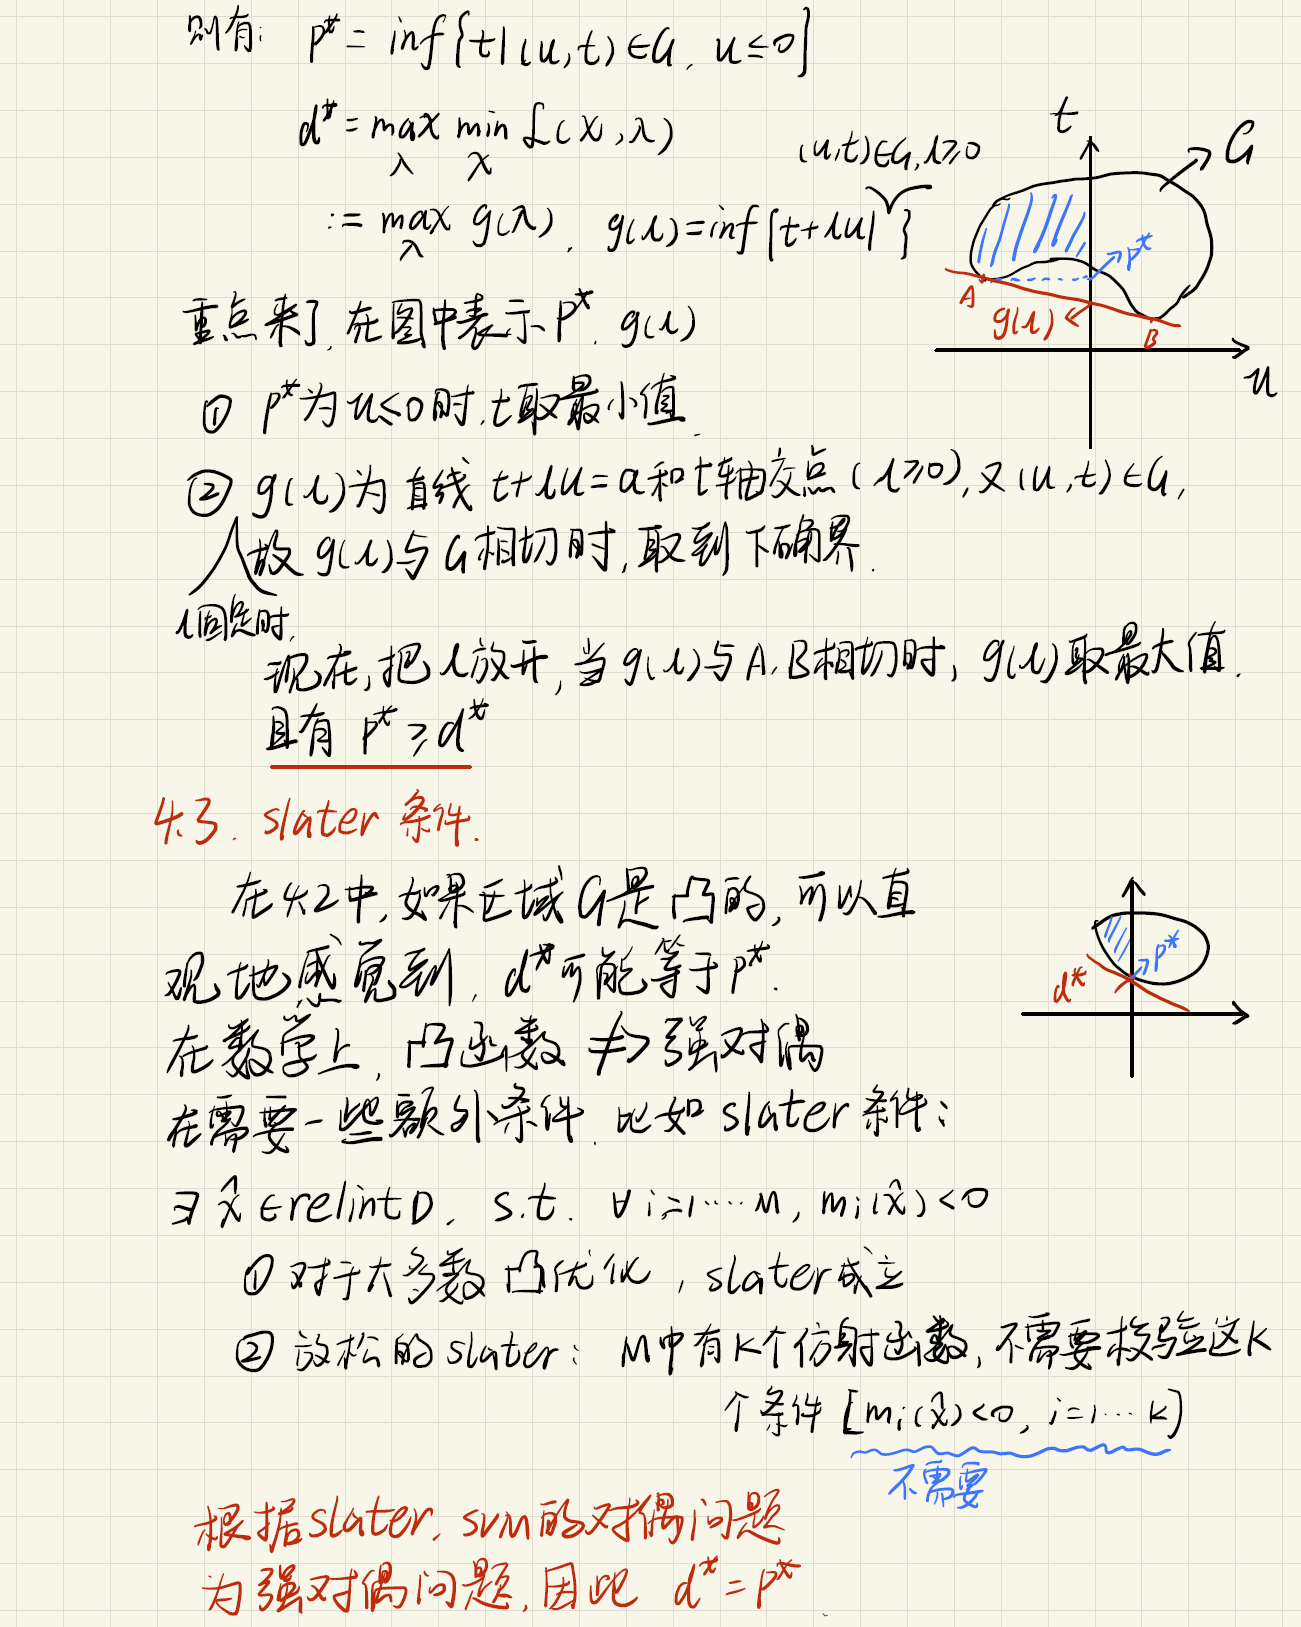 则有: p* = inf{t|(u,t)∈G, u≤0}
d* = max min L(x,λ)
λ x
(u,t)∈G, λ≥0
:= max g(λ), g(λ)=inf{t+λu| }
λ
t
G
p*
A
g(λ)
B
u
重点来了,在图中表示p*, g(λ)
① p*为u≤0时,t取最小值.
② g(λ)为直线 t+λu=a和t轴交点(λ≥0),又(u,t)∈G,
故g(λ)与G相切时,取到下确界.
λ固定时,
现在,把λ放开,当g(λ)与A,B相切时,g(λ)取最大值.
且有 p*≥d*
4.3. slater 条件.
在4.2中,如果区域G是凸的,可以直
观地感觉到,d*可能等于p*.
p*
d*
在数学上,凸函数 ⇏ 强对偶
在需要一些额外条件.比如slater条件:
∃ x̂ ∈ relint D, s.t. ∀ i=1⋯M, mi(x̂)<0
① 对于大多数凸优化,slater成立
② 放松的slater: M中有K个仿射函数,不需要校验这K
个条件 [mi(x̂)<0, i=1⋯K]
不需要
根据slater, SVM的对偶问题
为强对偶问题,因此 d*=p*.